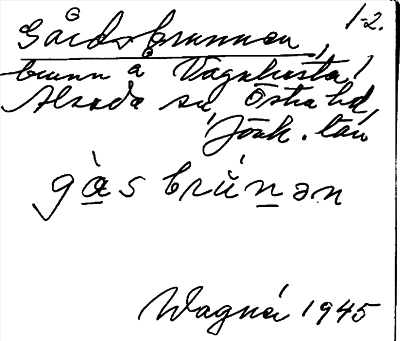 1-2.
Gårdsbrunnen,
brunn å Vagnhester,
Alseda sn, Östra hd,
Jönk. län
gàsbrùnən
Wagnér 1945